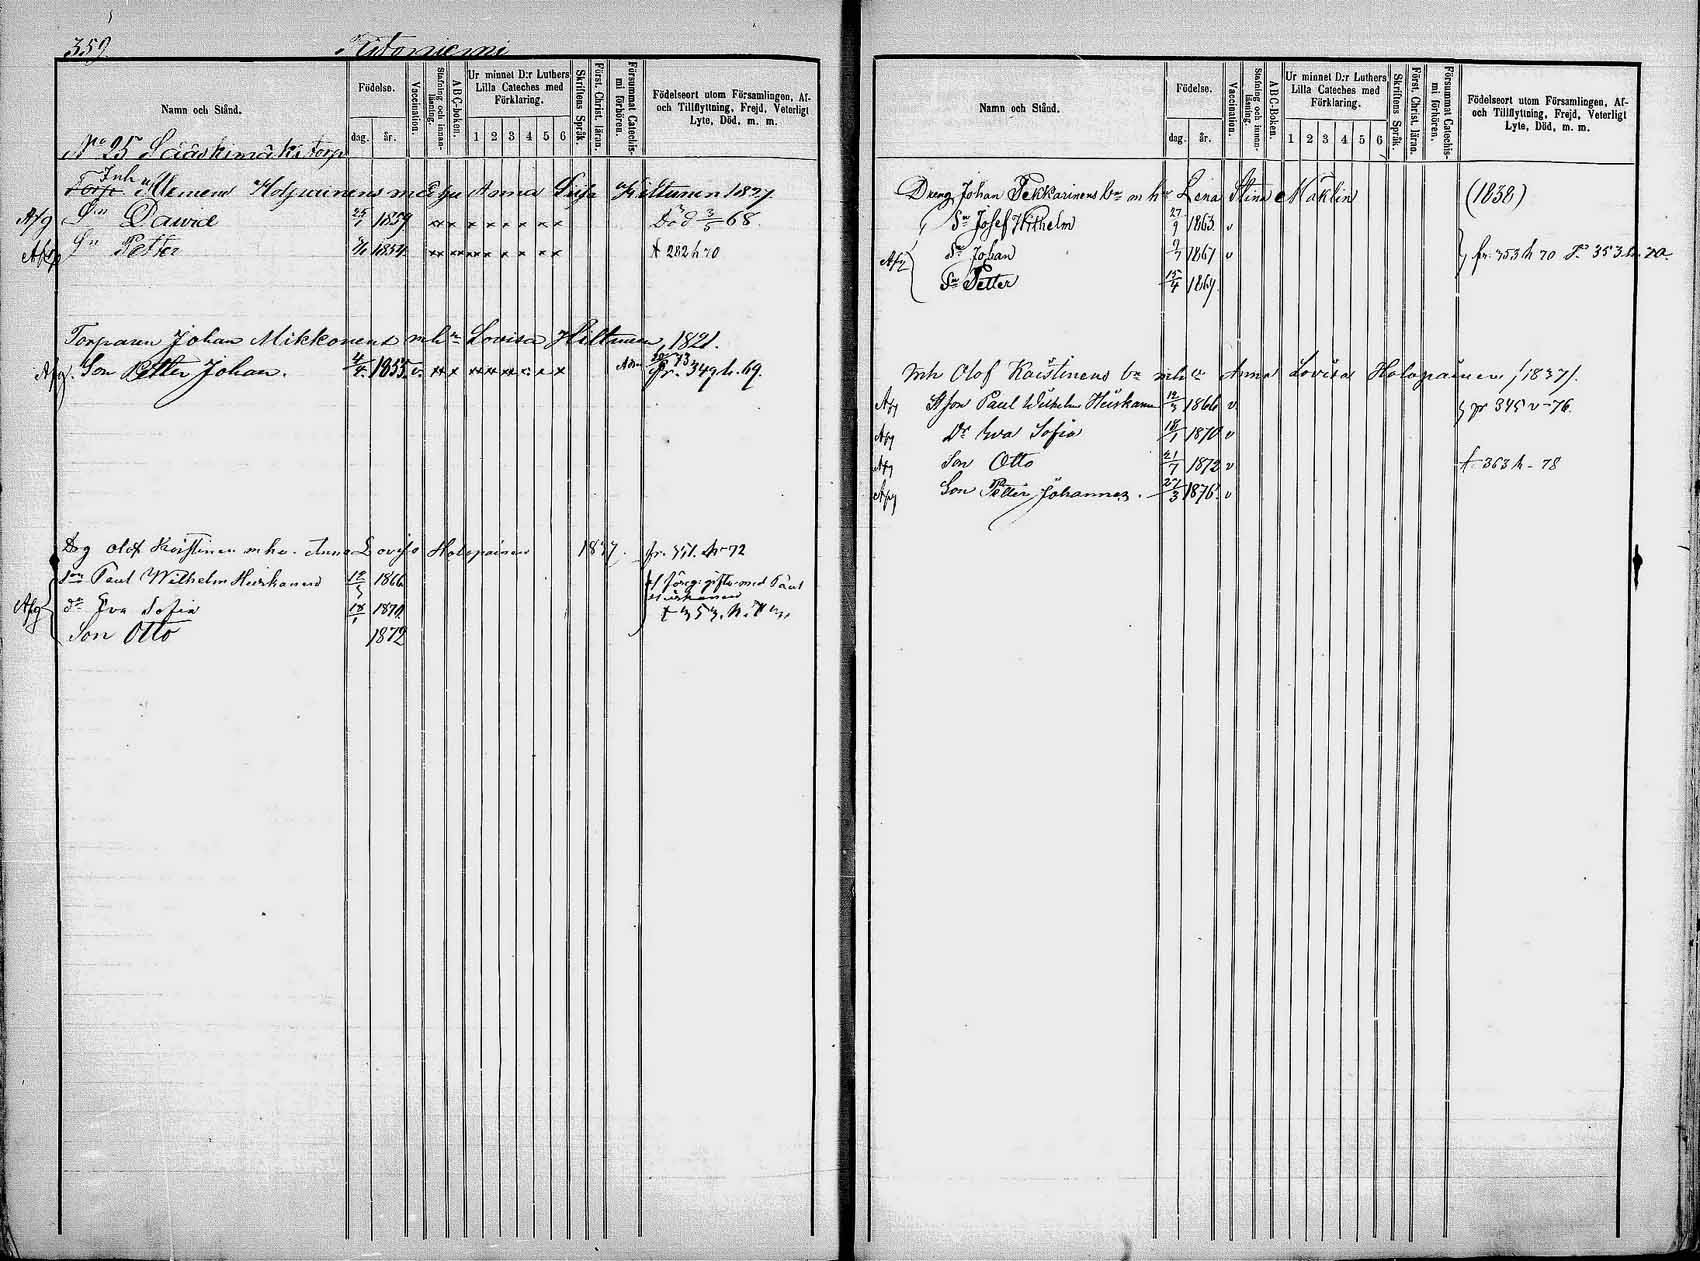 359.
Namn och Stånd.
Födelse.
dag. år.
Vaccination.
Stafning och innanläsning.
ABC-boken.
Ur minnet D:r Luthers Lilla Cateches med Förklaring.
1 2 3 4 5 6
Skriftens Språk.
Först. Christ. läran.
Försummat Catechismi förhören.
Födelseort utom Församlingen, Af- och Tillflyttning, Frejd, Veterligt Lyte, Död, m. m.
No 25 Sääskimäki torp
Inh Klemens Holpainens Enka Anna Hiltunen 1827.
Afg Sn David 25/1 1859 x x x x x x x x Död 3/5 68.
Sn Petter 1854 x x x x x x x x t 282 h 70
Torparen Johan Mikkonens mhu Lovisa Hiltunen, 1821.
Afg. Son Petter Johan. 4/4 1855 v. x x x x x x x x fr. 349 h. 69.
Drg Olof Kaistinen mhu. Anna Lovisa Holopainen 1837. fr. 351. h 72
son Paul Wilhelm Huskanen 12/3 1866
Afg dr Eva Sofia 18/1 1870
Son Otto 1872
Namn och Stånd.
Födelse.
dag. år.
Vaccination.
Stafning och innanläsning.
ABC-boken.
Ur minnet D:r Luthers Lilla Cateches med Förklaring.
1 2 3 4 5 6
Skriftens Språk.
Först. Christ. läran.
Försummat Catechismi förhören.
Födelseort utom Församlingen, Af- och Tillflyttning, Frejd, Veterligt Lyte, Död, m. m.
Dreng Johan Pekkarinens Enka Lena Stina Mäklin (1838)
Sn Josef Wilhelm 27/9 1863. v
Afg Sn Johan 1867 v fr. 353 h 70
Sn Petter 15/4 1869.
Inh Olof Kaistinens mhu Anna Lovisa Holopainen /1837/.
Afg St son Paul Wilhelm Huskanen 12/3 1866 v. fr 345 v 76.
Afg Dr Eva Sofia 18/1 1870 v
Afg Son Otto 21/7 1872 v t 363 h - 78
Afg Son Petter Johannes. 27/3 1876 v